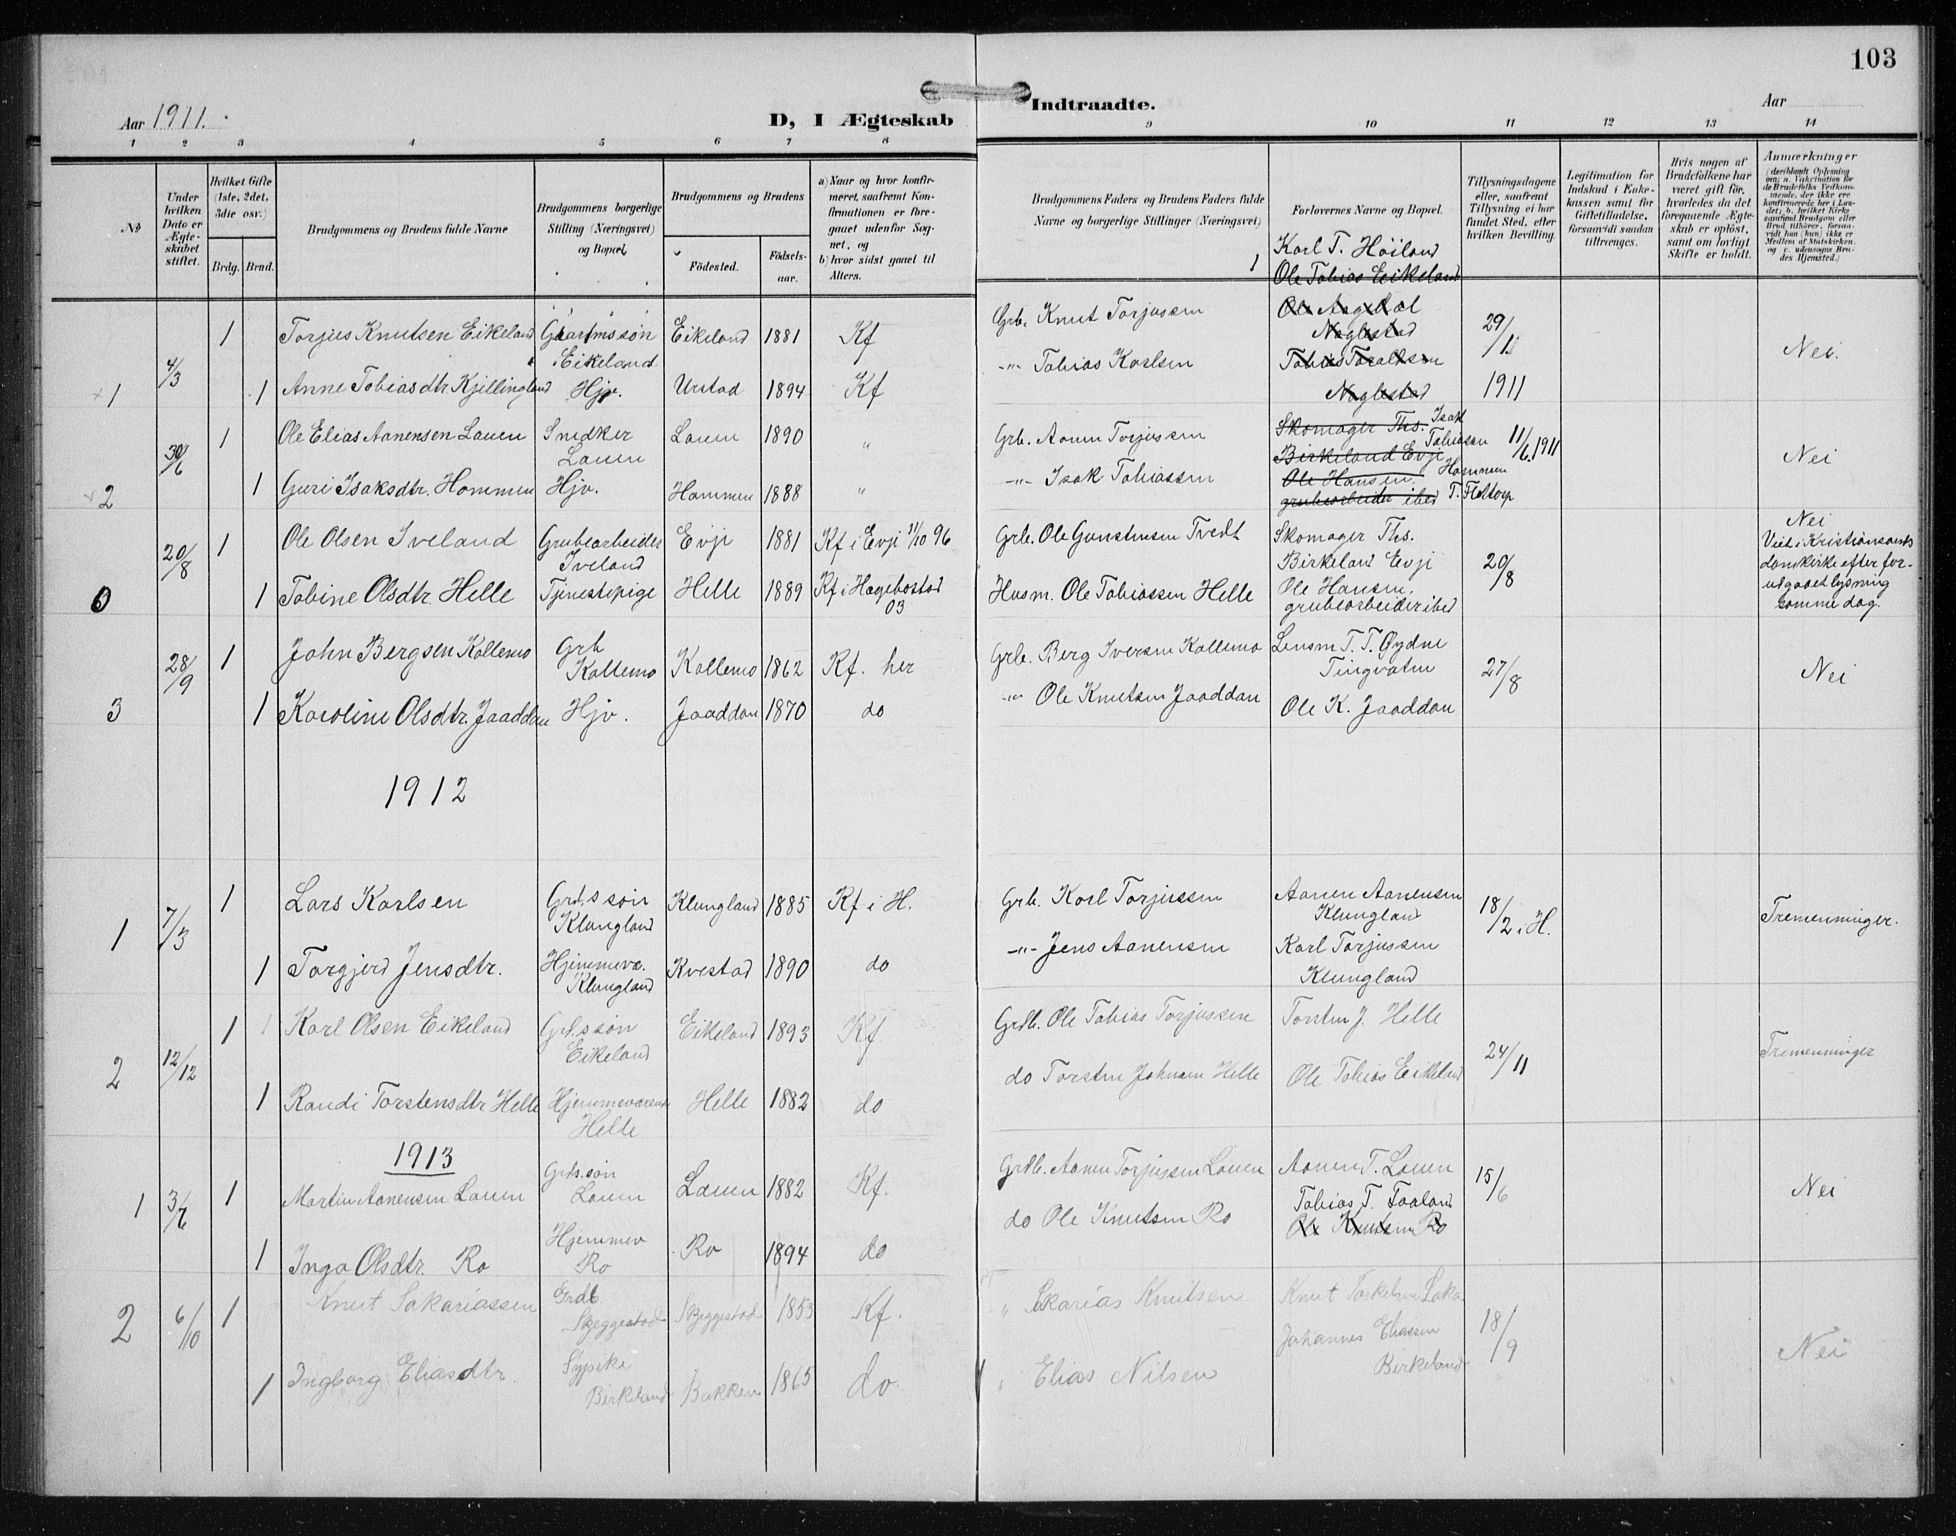 103
Aar 1911.
D, I Ægteskab
Indtraadte.
Aar
1 2 3 4 5 6 7 8 9 10 11 12 13 14
No
Under hvilken Dato er Ægteskabet stiftet.
Hvilket Gifte (1ste, 2det, 3die osv.)
Brdg. Brud.
Brudgommens og Brudens fulde Navne
Brudgommens borgerlige Stilling (Næringsvei) og Bopæl.
Brudgommens og Brudens
Födested.
Födselsaar.
a) Naar og hvor konfirmeret, saafremt Konfirmationen er foregaaet udenfor Sognet, og
b) hvor sidst gaaet til Alters.
Brudgommens Faders og Brudens Faders fulde Navne og borgerlige Stillinger (Næringsvei)
Forlovernes Navne og Bopæl.
Tillysningsdagene eller, saafremt Tillysning ei har fundet Sted, efter hvilken Bevilling.
Legitimation for Indskud i Enkekassen samt for Giftetilladelse, forsaavidt saadan tiltrænges.
Hvis nogen af Brudefolkene har været gift før, hvorledes da det foregaaende Ægteskab er oplöst, samt om lovligt Skifte er holdt.
Anmærkninger
(deriblandt Oplysning om: a. Vakcination for de Brudefolks Vedkommende, der ikke ere konfirmerede her i Landet; b. hvilket Kirkesamfund Brudgom eller Brud tilhører, forsaavidt han (hun) ikke er Medlem af Statskirken, og c. udensogns Brudes Hjemsted.)
1 Karl T. Höiland
Ole Tobias Eikeland
1 4/3 1 Torjus Knutsen Eikeland Gaardmssøn Eikeland Eikeland 1881 Kf Grb. Knut Torjussen
Naglestad
29/1 1911
Nei.
1 Anne Tobiasdtr. Kjellingland Hjv. Urstad 1894 Kf -"- Tobias Karlsen
Naglestad
2 30/6 1 Ole Elias Aanensen Lauen Snedker Lauen Lauen 1890 " Grb. Aanen Torjussen
Skomager Ths. Birkeland Evje
Isak Tobiassen Hommen
11/6 1911
Nei
1 Guri Isaksdtr. Hommen Hjv. Hommen 1888 " -"- Isak Tobiassen
Ole Hansen, grubearbeider ibed
T. Flottorp
0 20/8 1 Ole Olsen Iveland Grubearbeider Iveland Evji 1881 Kf i Evji 11/10 96 Grb. Ole Gunstensen Tvedt
Skomager Ths. Birkeland Evji
20/8
Nei
Viet i Kristiansands domkirke efter forudgaaet lysning samme dag.
1 Tobine Olsdtr. Helle Tjenestepige Helle 1889 Kf i Hægebostad 03 Husm. Ole Tobiassen Helle
Ole Hansen, grubearbeider ibed
3 28/9 1 John Bergsen Kollemo Grb Kollemo Kollemo 1862 Kf. her Grb. Berg Iversen Kollemo
Lensm T. T. Øydne Tingvatn
27/8
Nei
1 Karoline Olsdtr. Jaaddan Hjv. Jaaddan 1870 do -"- Ole Knutsen Jaaddan
Ole K. Jaaddan
1912
1 7/3 1 Lars Karlsen Grds søn Klungland Klungland 1885 Kf i H. Grb. Karl Torjussen
Aanen Aanensen Klungland
18/2 i H.
Tremenninger.
1 Torgjerd Jensdtr. Hjemmevæ. Klungland Kvestad 1890 do -"- Jens Aanensen
Karl Torjussen Klungland
2 12/12 1 Karl Olsen Eikeland Grd.søn Eikeland Eikeland 1893 Kf Grdb. Ole Tobias Torjussen
Torsten J. Helle
24/11
Tremenninger
1 Randi Torstensdtr Helle Hjemmeværende Helle Helle 1882 do do Torsten Johnsen Helle
Ole Tobias Eikeland
1913
1 3/7 1 Martin Aanensen Lauen Grds.søn Lauen Lauen 1882 Kf. Grdb. Aanen Torjussen Lauen
Aanen T. Lauen
15/6
Nei
1 Inga Olsdtr. Ro Hjemmev Ro Ro 1894 do do Ole Knutsen Ro
Tobias T. Faaland
Ole Knutsen Ro
2 6/10 1 Knut Sakariassen Grdb. Skeggestad Skeggestad 1853 Kf. " Sakarias Knutsen
Knut
18/9
Nei
1 Ingborg Eliasdtr. Sypike Birkeland Bakken 1865 do. " Elias Nilsen
Johannes Eliassen Birkeland